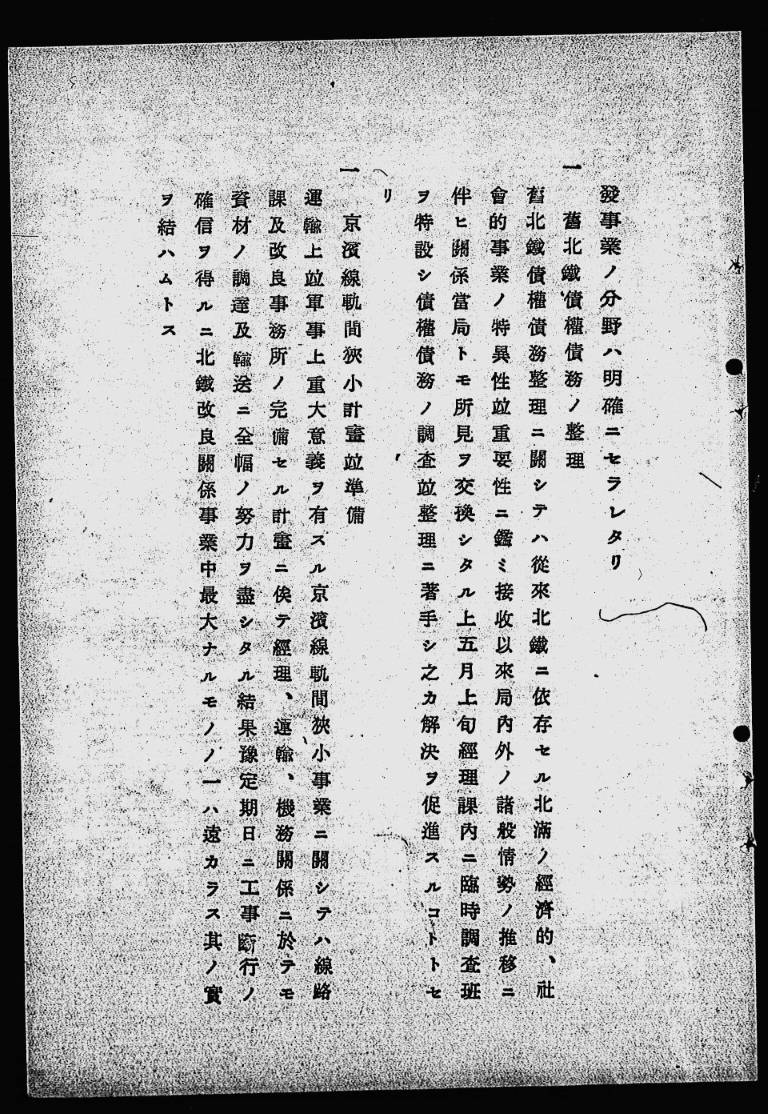 發事業ノ分野ハ明確ニセラレタリ
一　舊北鐵債權債務ノ整理
舊北鐵債權債務整理ニ關シテハ從來北鐵ニ依存セル北滿ノ經濟的、社
會的事業ノ特異性竝重要性ニ鑑ミ接收以來局內外ノ諸般情勢ノ推移ニ
伴ヒ關係當局トモ所見ヲ交換シタル上五月上旬經理課內ニ臨時調查班
ヲ特設シ債權債務ノ調查竝整理ニ著手シ之カ解決ヲ促進スルコトトセ
リ
一　京濱線軌間狹小計畫竝準備
運輸上竝軍事上重大意義ヲ有スル京濱線軌間狹小事業ニ關シテハ線路
課及改良事務所ノ完備セル計畫ニ俟テ經理、運輸、機務關係ニ於テモ
資材ノ調達及輸送ニ全幅ノ努力ヲ盡シタル結果豫定期日ニ工事斷行ノ
確信ヲ得ルニ北鐵改良關係事業中最大ナルモノノ一ハ遠カラス其ノ實
ヲ結ハムトス